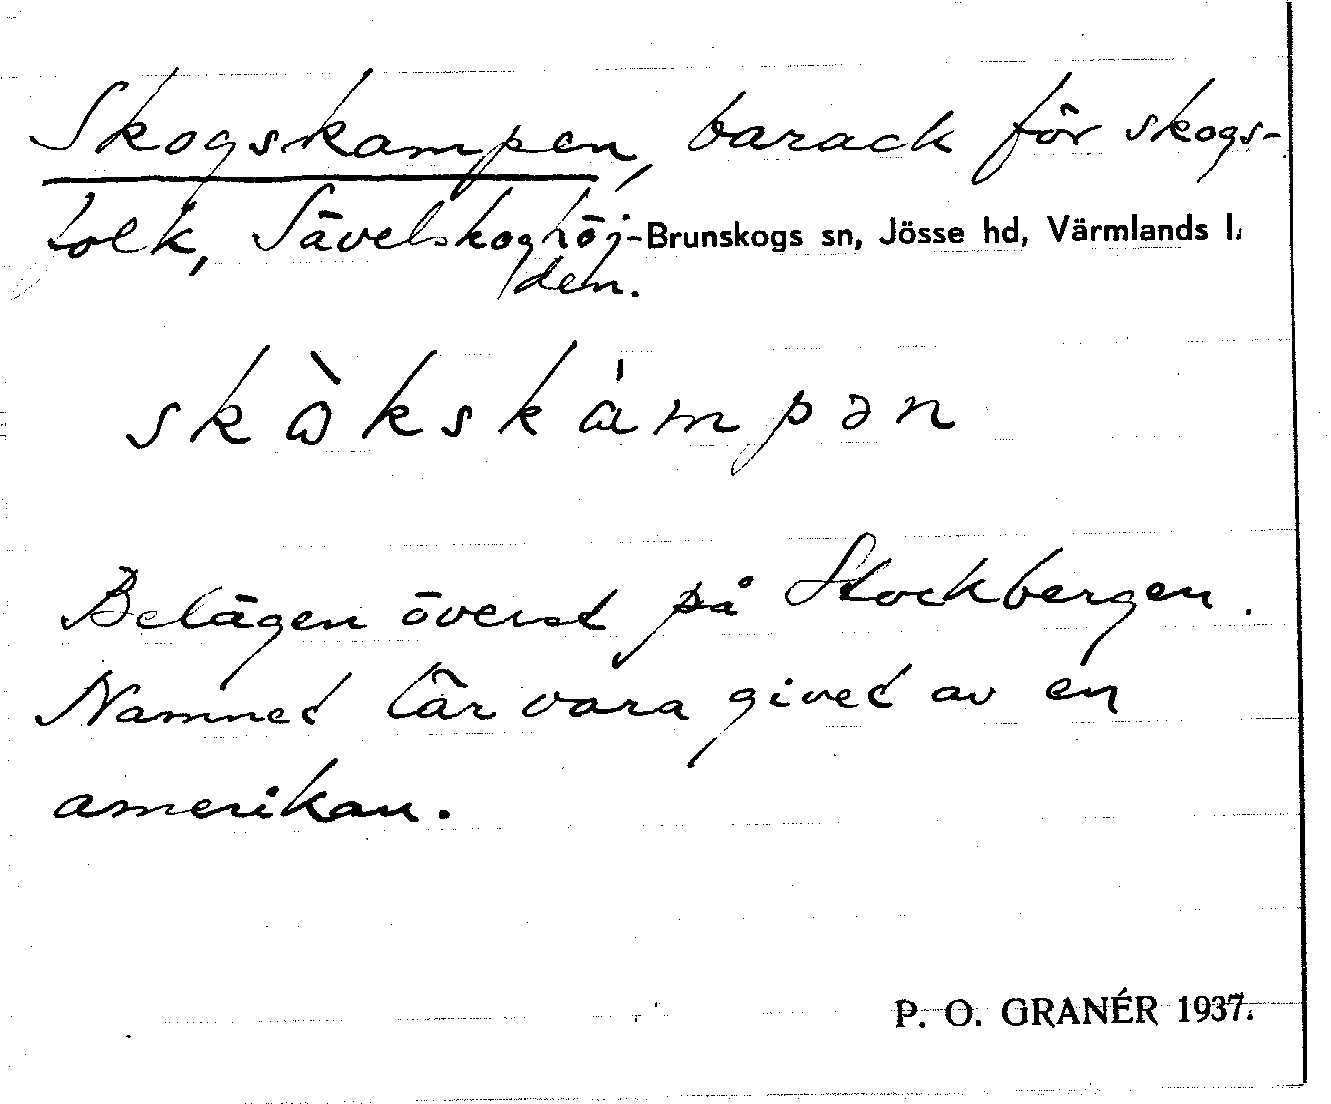 Skogskampen, barack för skogs-
folk, Sävelskoghöj- Brunskogs sn, Jösse hd, Värmlands l.
den.
skὼkskámpən
Belägen överst på Stockbergen.
Namnet lär vara givet av en
amerikan.
P. O. GRANÉR 1937.